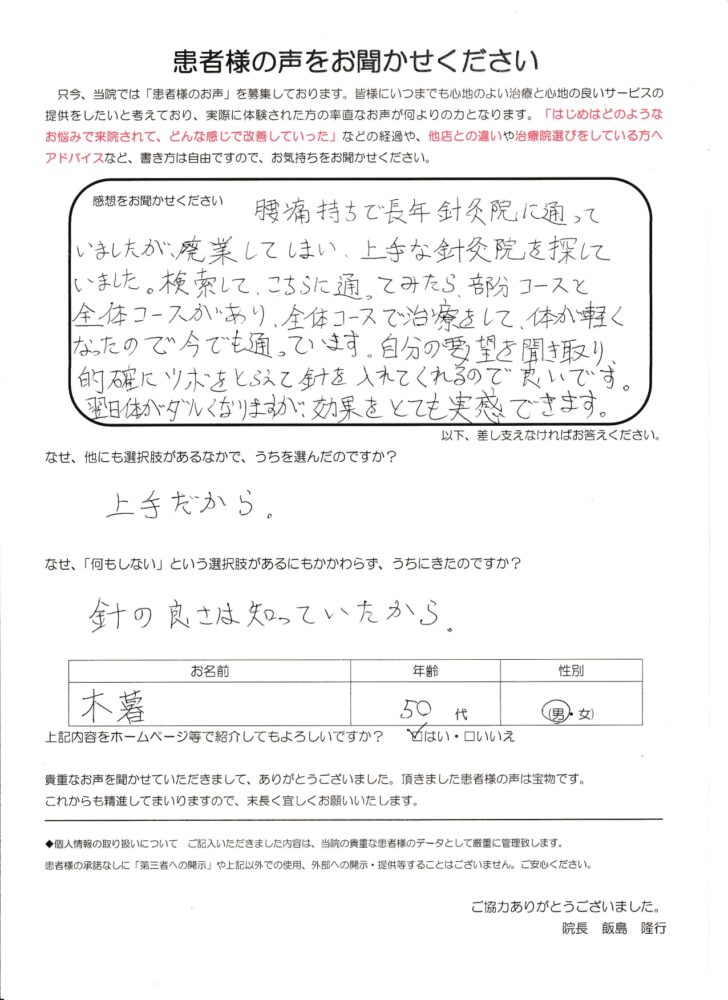 患者様の声をお聞かせください
只今、当院では「患者様のお声」を募集しております。皆様にいつまでも心地のよい治療と心地の良いサービスの
提供をしたいと考えており、実際に体験された方の率直なお声が何よりの力となります。「はじめはどのような
お悩みで来院されて、どんな感じで改善していった」などの経過や、他店との違いや治療院選びをしている方へ
アドバイスなど、書き方は自由ですので、お気持ちをお聞かせください。
感想をお聞かせください 腰痛持ちで長年針灸院に通って
いましたが、廃業してしまい、上手な針灸院を探して
いました。検索して、こちらに通ってみたら、部分コースと
全体コースがあり、全体コースで治療をして、体が軽く
なったので今でも通っています。自分の要望を聞き取り、
的確にツボをとらえて針を入れてくれるので良いです。
翌日体がダルくなりますが、効果をとても実感できます。
以下、差し支えなければお答えください。
なぜ、他にも選択肢があるなかで、うちを選んだのですか？
上手だから。
なぜ、「何もしない」という選択肢があるにもかかわらず、うちにきたのですか？
針の良さは知っていたから。
お名前 年齢 性別
木暮 50 代 (男・女)
上記内容をホームページ等で紹介してもよろしいですか？ ☑はい・□いいえ
貴重なお声を聞かせていただきまして、ありがとうございました。頂きました患者様の声は宝物です。
これからも精進してまいりますので、末長く宜しくお願いいたします。
◆個人情報の取り扱いについて ご記入いただきました内容は、当院の貴重な患者様のデータとして厳重に管理致します。
患者様の承諾なしに「第三者への開示」や上記以外での使用、外部への開示・提供等することはございません。ご安心ください。
ご協力ありがとうございました。
院長 飯島 隆行